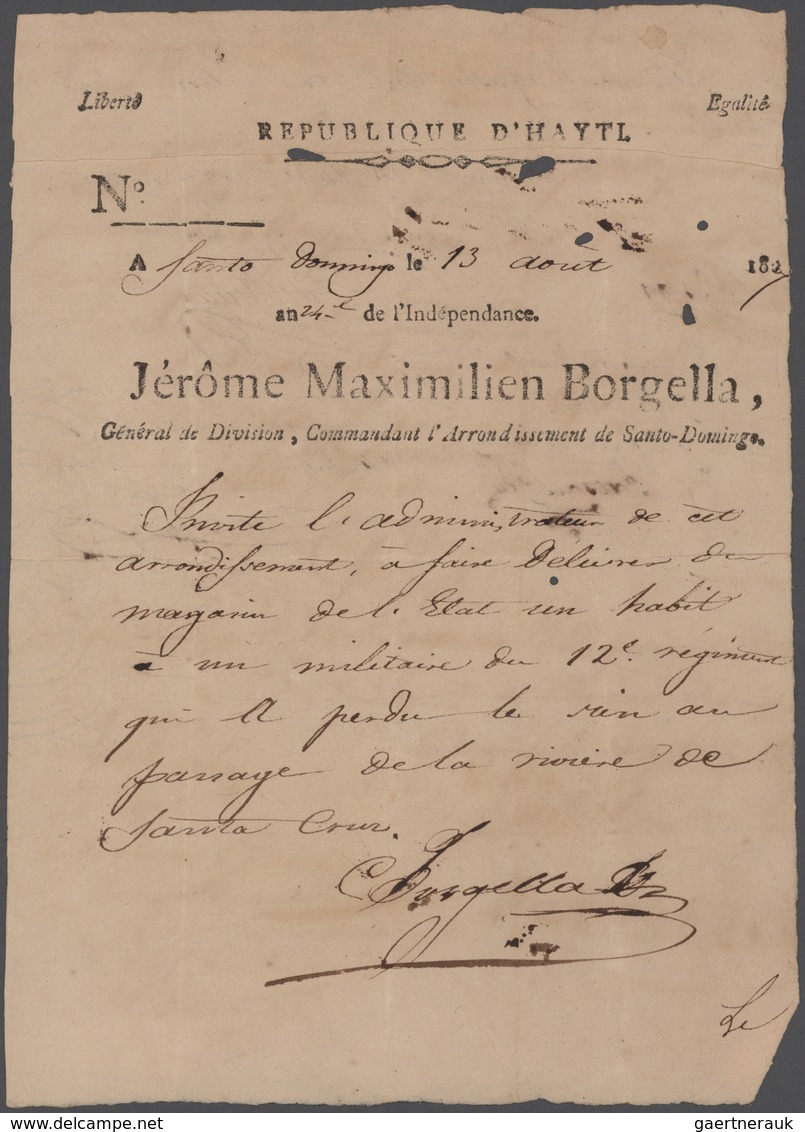 Liberté Egalité
REPUBLIQUE D'HAYTI.
N.º
A Santo Domingo le 13 août 1827
an 24e de l'Indépendance.
Jérôme Maximilien Borgella,
Général de Division, Commandant l'Arrondissement de Santo-Domingo.
Invite l'administrateur de cet
arrondissement, à faire Délivrer du
magasin de l'Etat un habit
à un militaire du 12e. régiment
qui a perdu le sien au
passage de la rivière de
Santa Cruz.
Borgella
Le
gaertnerauk